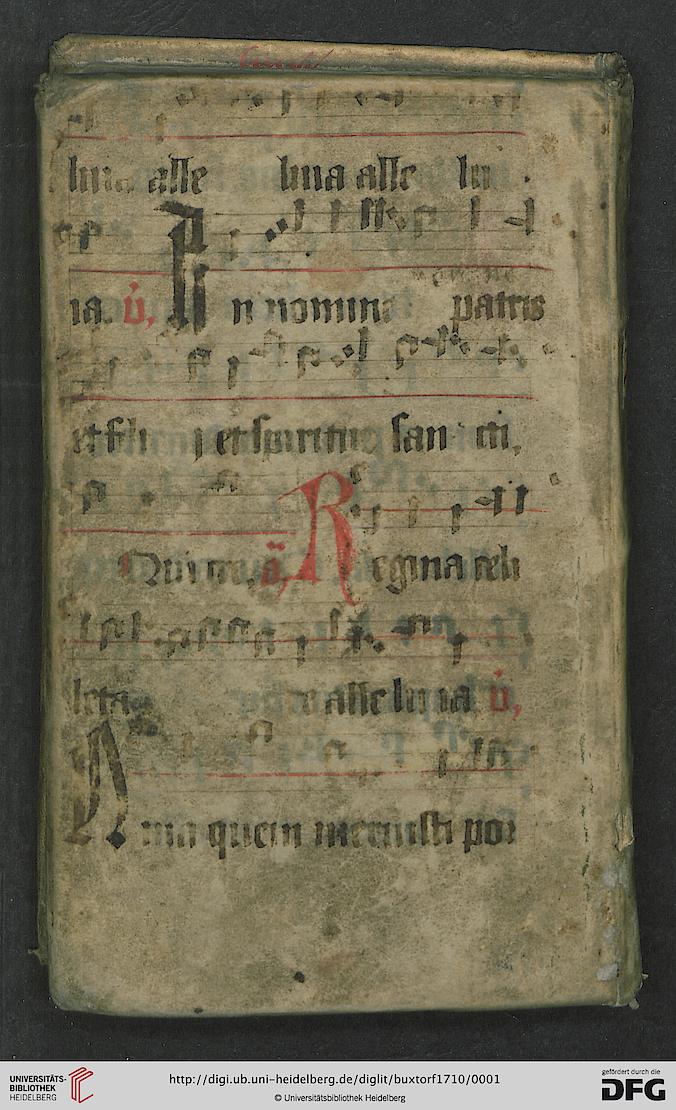 luia alle luia alle lu
ia. v̇, In nomine patris
et filii et spiritus sancti,
Quires. a, Regina celi
leta alleluia v̇,
Nına quem meruisti por
UNIVERSITÄTS-
BIBLIOTHEK
HEIDELBERG
http://digi.ub.uni-heidelberg.de/diglit/buxtorf1710/0001
© Universitätsbibliothek Heidelberg
gefördert durch die
DFG